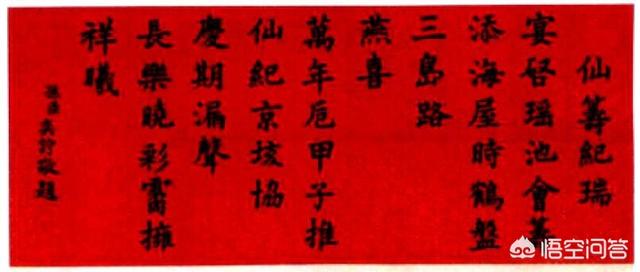 仙籌紀瑞
宴啓瑶池會籌
添海屋時鶴盤
三島路
燕喜
萬年卮甲子推
仙紀京垓協
慶期漏聲
長樂曉彩霱擁
祥曦
臣 敬題
悟空问答